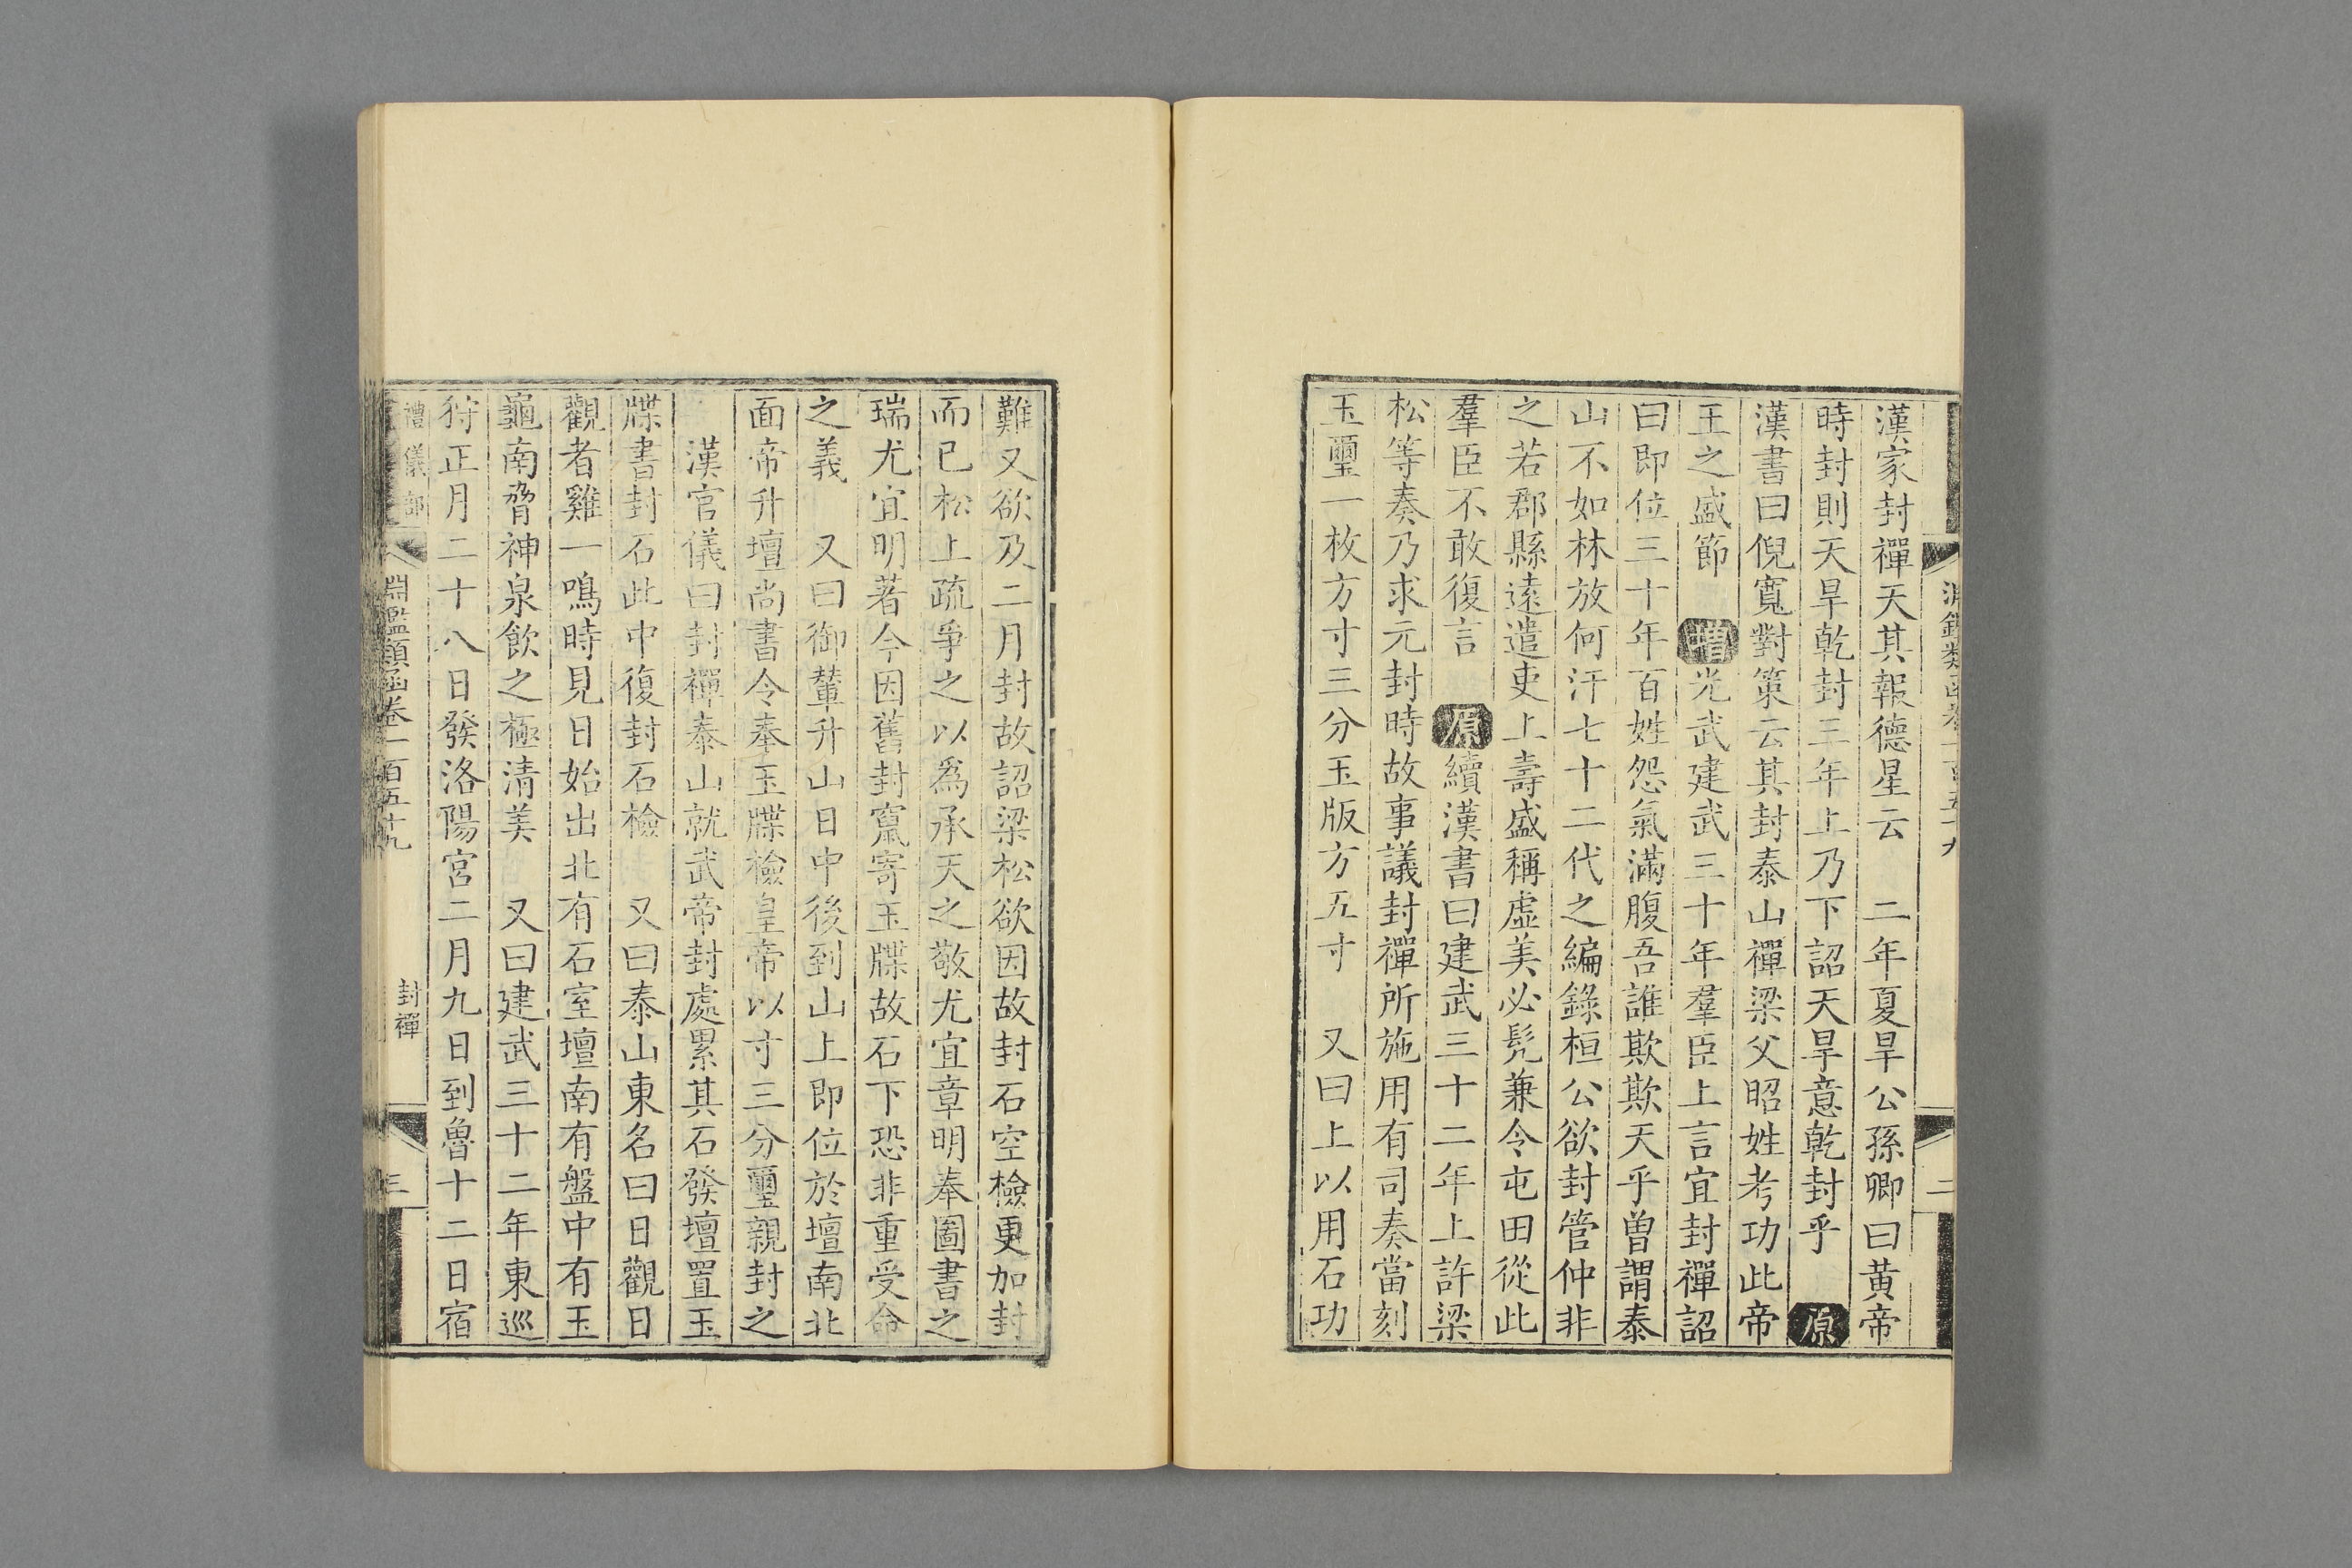 漢家封禪天其報德星云　二年夏旱公孫卿曰黃帝
時封則天旱乾封三年上乃下詔天旱意乾封乎　原
漢書曰倪寬對策云其封泰山禪梁父昭姓考功此帝
王之盛節　增光武建武三十年羣臣上言宜封禪詔
曰即位三十年百姓怨氣滿腹吾誰欺欺天乎曾謂泰
山不如林放何汙七十二代之編錄桓公欲封管仲非
之若郡縣遠遣吏上壽盛稱虛美必髡兼令屯田從此
羣臣不敢復言　原續漢書曰建武三十二年上許梁
松等奏乃求元封時故事議封禪所施用有司奏當刻
玉璽一枚方寸三分玉版方五寸　又曰上以用石功
難又欲及二月封故詔梁松欲因故封石空檢更加封
而已松上疏爭之以為承天之敬尤宜章明奉圖書之
瑞尤宜明著今因舊封竄寄玉牒故石下恐非重受命
之義　又曰御輦升山日中後到山上即位於壇南北
面帝升壇尚書令奉玉牒檢皇帝以寸三分璽親封之
漢官儀曰封禪泰山就武帝封處累其石發壇置玉
牒書封石此中復封石檢　又曰泰山東名曰日觀日
觀者雞一鳴時見日始出北有石室壇南有盤中有玉
龜南脅神泉飲之極清美　又曰建武三十二年東巡
狩正月二十八日發洛陽宮二月九日到魯十二日宿
禮儀部　淵鑑類函卷一百五十九　封禪　三